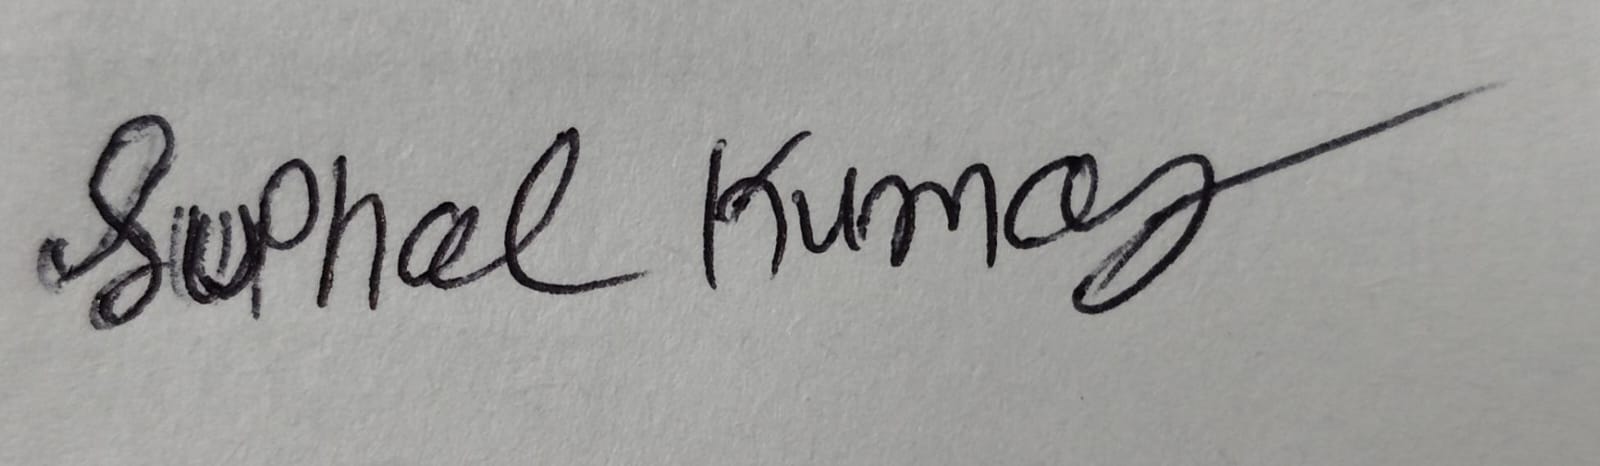 Suphal Kumar